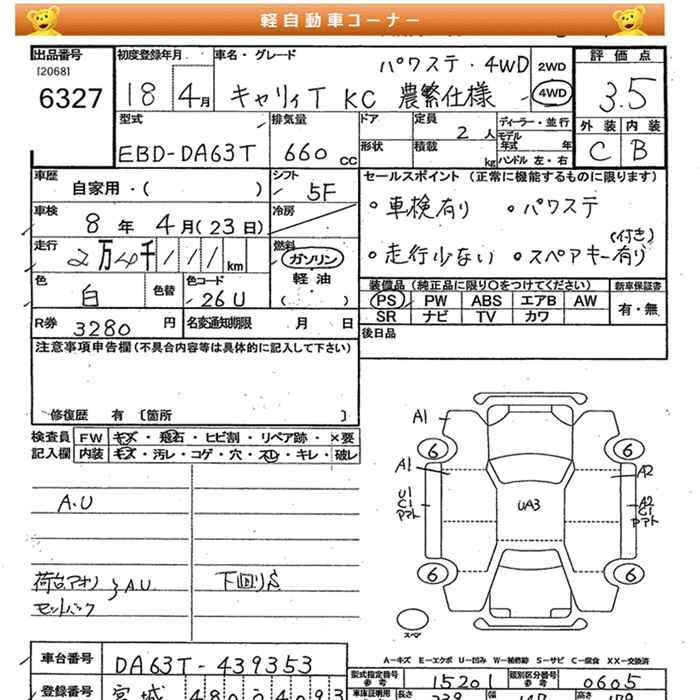 軽自動車コーナー
出品番号
[2068]
6327
初度登録年月
18 4月
車名・グレード
パワステ・4WD
キャリイT KC 農繁仕様
2WD
4WD
評価点
3.5
外装 内装
C B
型式
EBD-DA63T
排気量
660 CC
ドア
形状
定員 2人
積載 kg
ディーラー・並行
モデル年式 年
ハンドル 左・右
車歴
自家用・( )
シフト
5F
車検
8年 4月(23日)
冷房
走行
2万4千111km
燃料
ガソリン
軽油
( )
セールスポイント(正常に機能するものに限ります)
・車検有り ・パワステ
・走行少ない ・スペアキー有り
(付き)
色
白
色替
色コード
26U
装備品(純正品に限り〇をつけてください)
PS PW ABS エアB AW
SR ナビ TV カワ
新車保証書
有・無
R券 3280円
名変通知期限 月 日
後日品
注意事項申告欄(不具合内容等は具体的に記入して下さい)
修復歴 有 〔箇所 〕
検査員記入欄
FW キズ・飛石・ヒビ割・リペア跡・×要
内装 キズ・汚レ・コゲ・穴・スレ・キレ・破レ
A.U
荷台アオリ
セットバック
A.U
下回りS
A1
6 6
A1 A2
U1
C1
アマト
UA3
A2
C1
アマト
6 6
スペア
A-キズ E-エクボ U-凹み W-補修跡 S-サビ C-腐食 XX-交換済
車台番号
DA63T-439353
型式指定番号
参考
15201
類別区分番号
参考
0605
登録番号
宮城 480
車庫証明用
長さ
幅
高さ